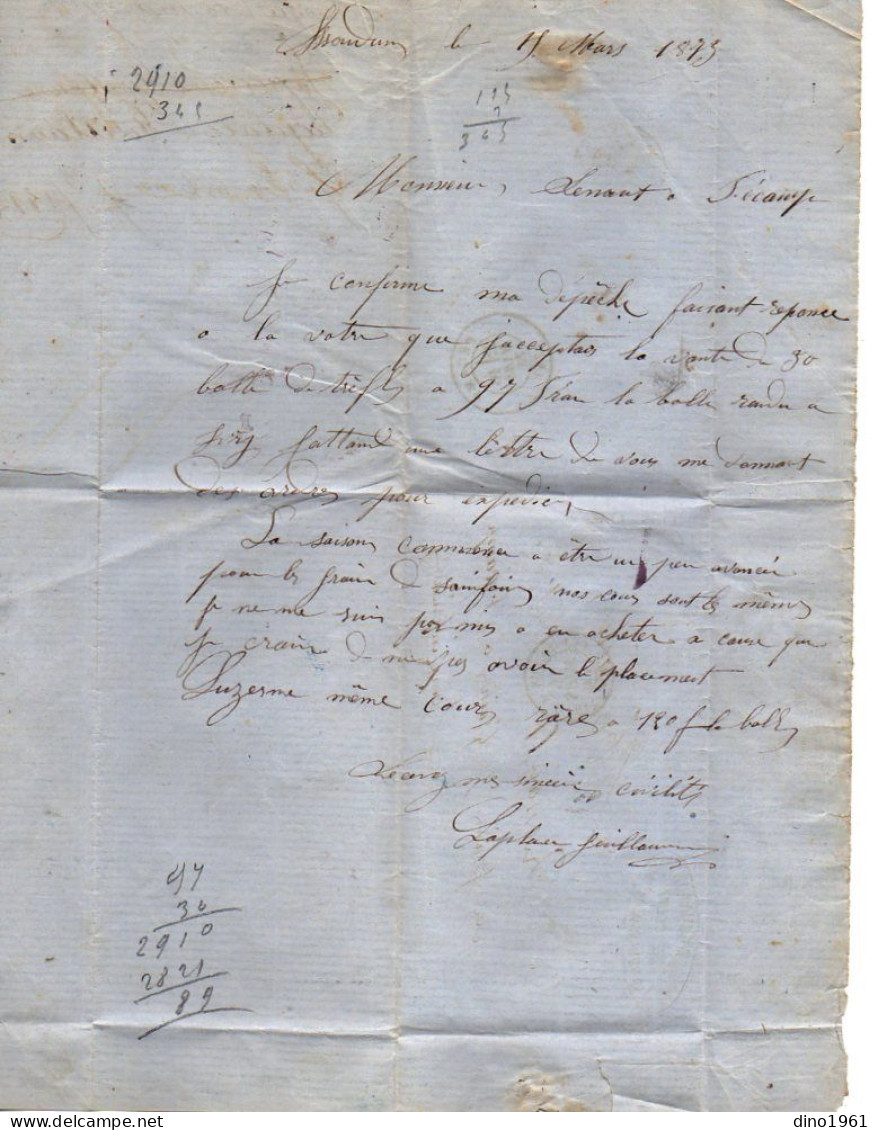 Issoudun le 15 Mars 1873
2910
345
115
3
345
Monsieur, Lenant a Fécamp
Je confirme ma dépêche faisant reponce
a la votre que j'acceptais la vante de 30
balle de trèfle a 97 Fran la balle randu a
jattand une lettre de vous me donnant
des ordres pour expedier,
La saison commence a être un peu avancée
pour les grain de sainfoin, nos cours sont les mêmes
je ne me suis permis a en acheter a cause que
je crain de ne pas avoir le placement
Luzerne même cours rare a 120 f la balle
Recevez mes sincère civilités
Laplace Guillaumin
97
30
2910
2821
89
dino1961